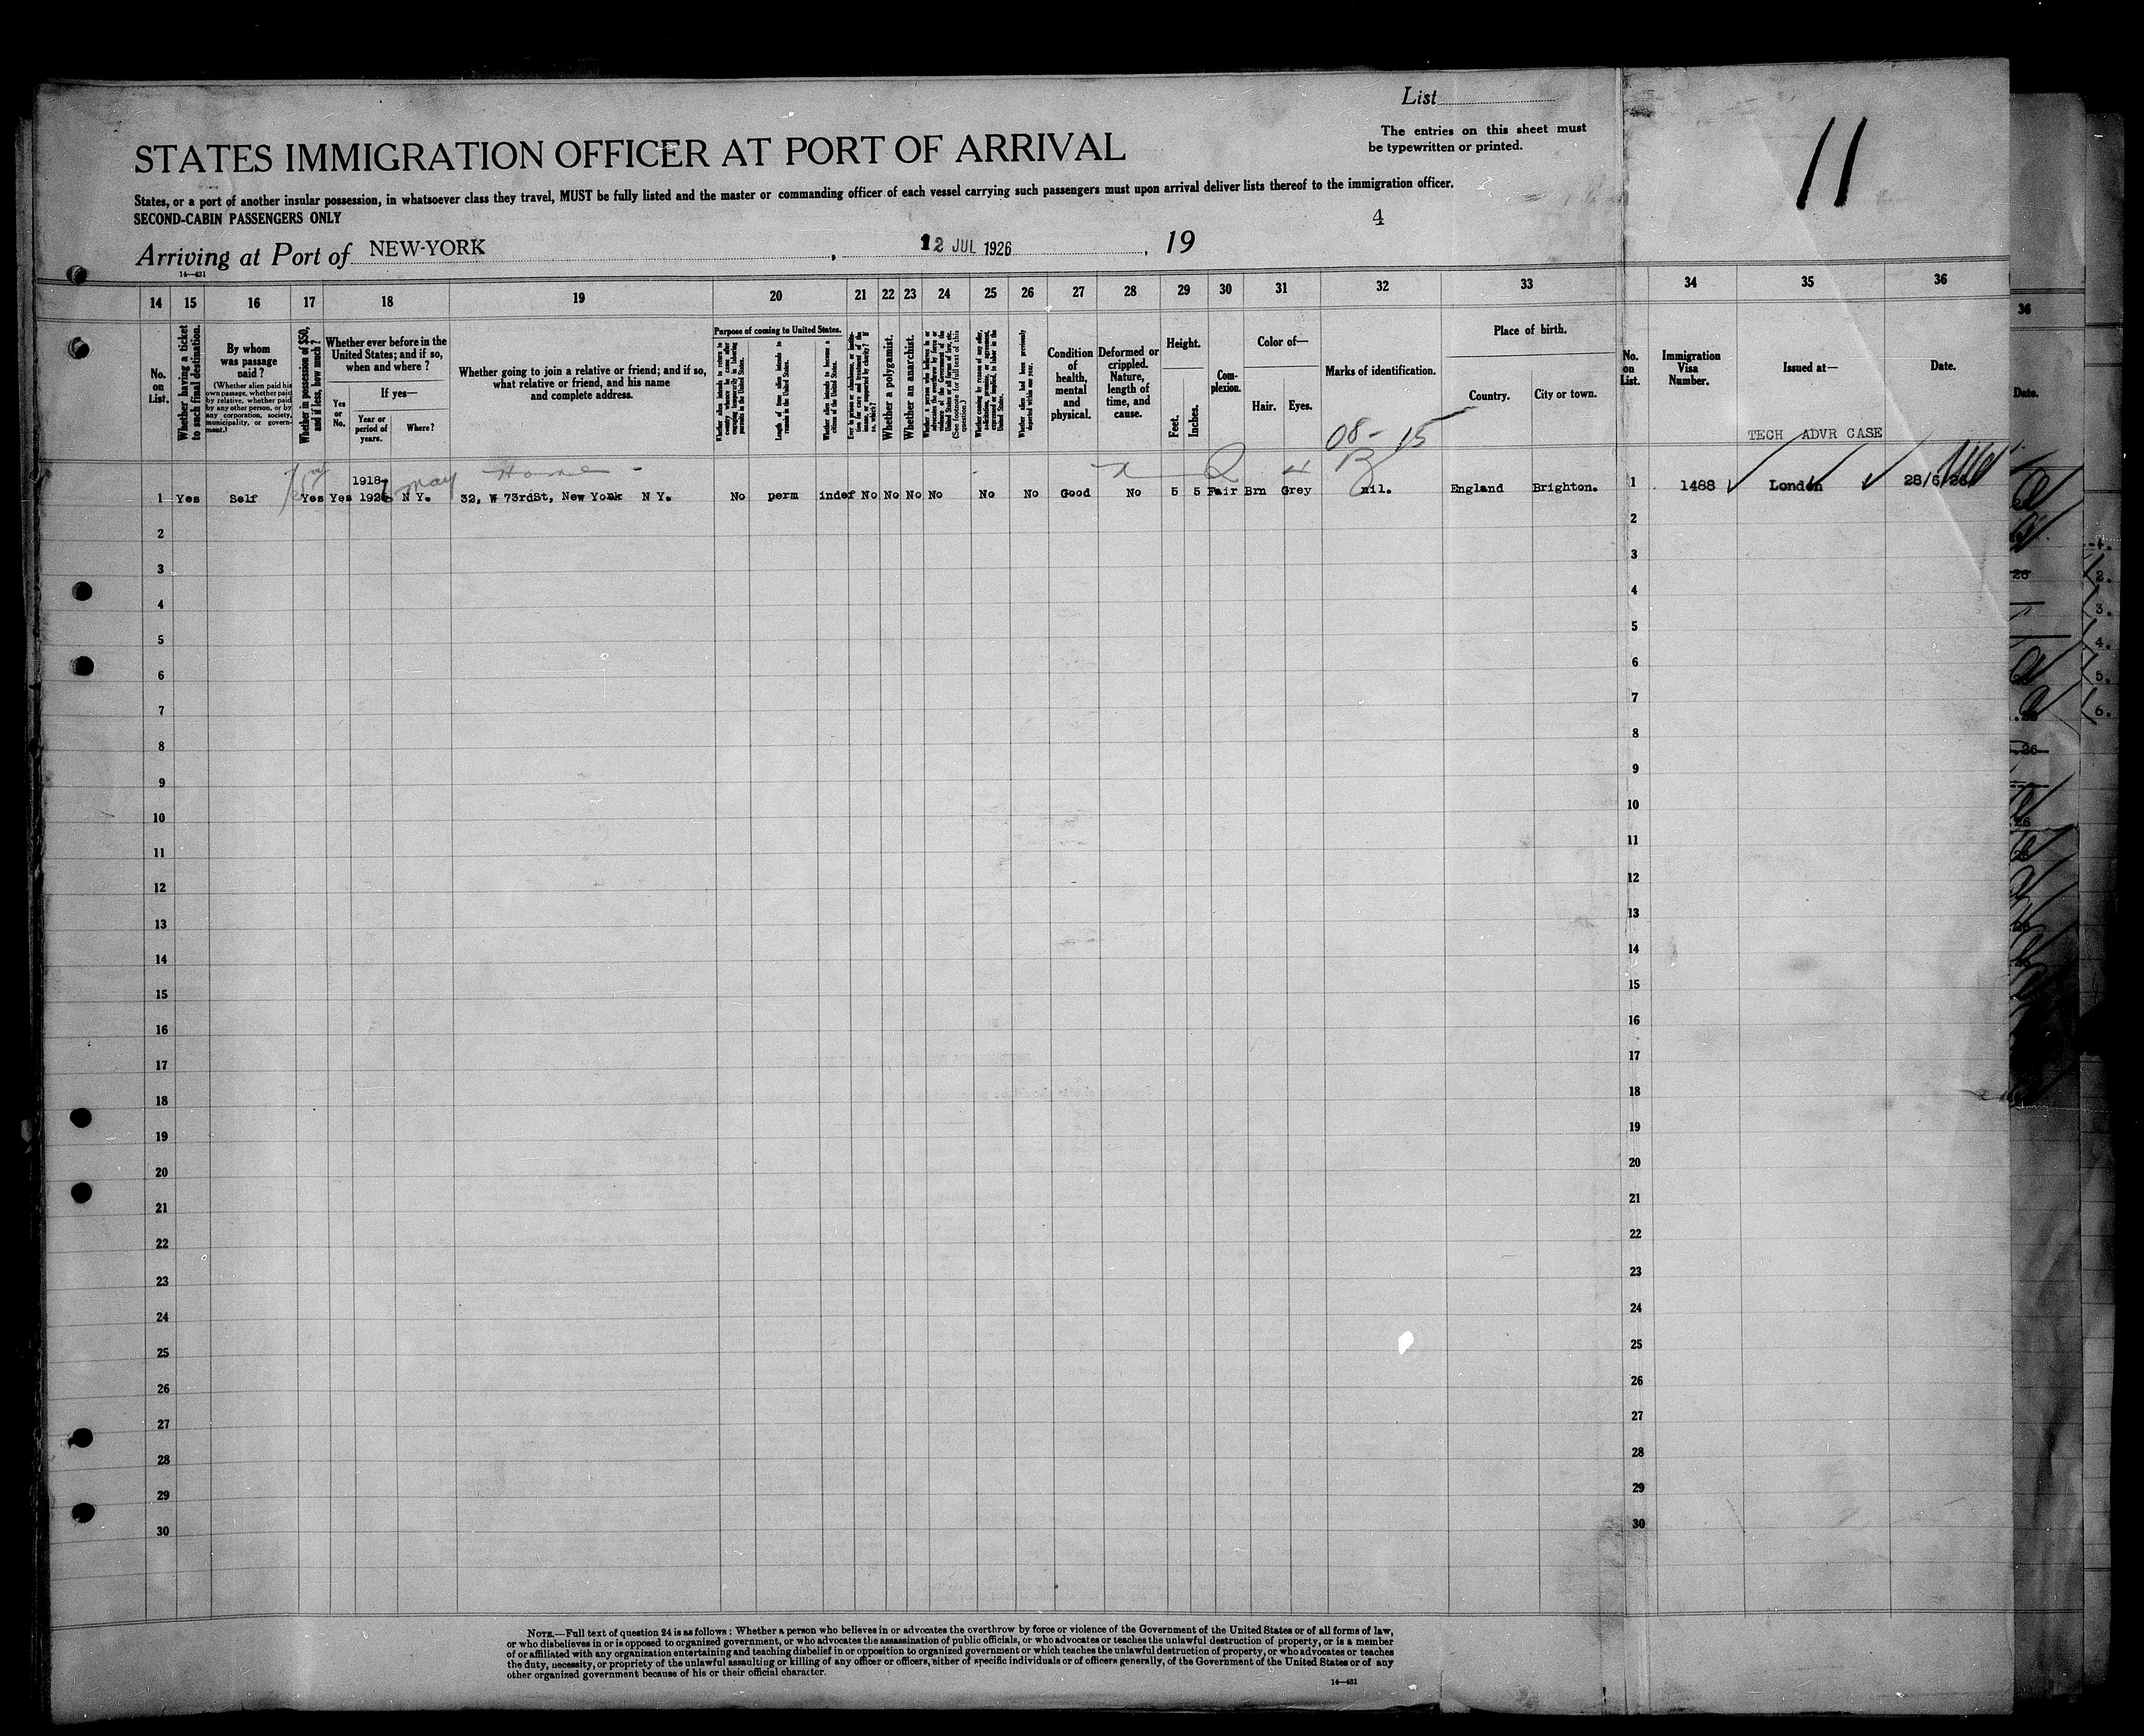 List
The entries on this sheet must
be typewritten or printed.
11
STATES IMMIGRATION OFFICER AT PORT OF ARRIVAL
States, or a port of another insular possession, in whatsoever class they travel, MUST be fully listed and the master or commanding officer of each vessel carrying such passengers must upon arrival deliver lists thereof to the immigration officer.
SECOND-CABIN PASSENGERS ONLY
4
Arriving at Port of NEW-YORK, 12 JUL 1926, 19
14—431
14 15 16 17 18 19 20 21 22 23 24 25 26 27 28 29 30 31 32 33 34 35 36
No. on List.
Whether having a ticket to such final destination.
By whom was passage paid?
(Whether alien paid his own passage, whether paid by relative, whether paid by any other person, or by any corporation, society, municipality, or government.)
Whether in possession of $50, and if less, how much?
Whether ever before in the United States; and if so, when and where?
If yes—
Yes or No.
Year or period of years.
Where?
Whether going to join a relative or friend; and if so, what relative or friend, and his name and complete address.
Purpose of coming to United States.
Length of time alien intends to remain in the United States.
Whether alien intends to become a citizen of the United States.
Whether a polygamist.
Whether an anarchist.
(See footnote for full text of this question.)
Whether alien had been previously deported within one year.
Condition of health, mental and physical.
Deformed or crippled. Nature, length of time, and cause.
Height.
Feet.
Inches.
Complexion.
Color of—
Hair.
Eyes.
Marks of identification.
Place of birth.
Country.
City or town.
No. on List.
Immigration Visa Number.
Issued at—
Date.
08- 15
TECH ADVR CASE
May Home -
1918
1 Yes Self Yes Yes 1926 N Y. 32, W 73rdSt, New York N Y. No perm indef No No No No No No Good No 5 5 Fair Brn Grey nil. England Brighton. 1 1488 London 28/6/26
2 2
3 3
4 4
5 5
6 6
7 7
8 8
9 9
10 10
11 11
12 12
13 13
14 14
15 15
16 16
17 17
18 18
19 19
20 20
21 21
22 22
23 23
24 24
25 25
26 26
27 27
28 28
29 29
30 30
36
Date.
NOTE.—Full text of question 24 is as follows: Whether a person who believes in or advocates the overthrow by force or violence of the Government of the United States or of all forms of law,
or who disbelieves in or is opposed to organized government, or who advocates the assassination of public officials, or who advocates or teaches the unlawful destruction of property, or is a member
of or affiliated with any organization entertaining and teaching disbelief in or opposition to organized government or which teaches the unlawful destruction of property, or who advocates or teaches
the duty, necessity, or propriety of the unlawful assaulting or killing of any officer or officers, either of specific individuals or of officers generally, of the Government of the United States or of any
other organized government because of his or their official character.
14—431